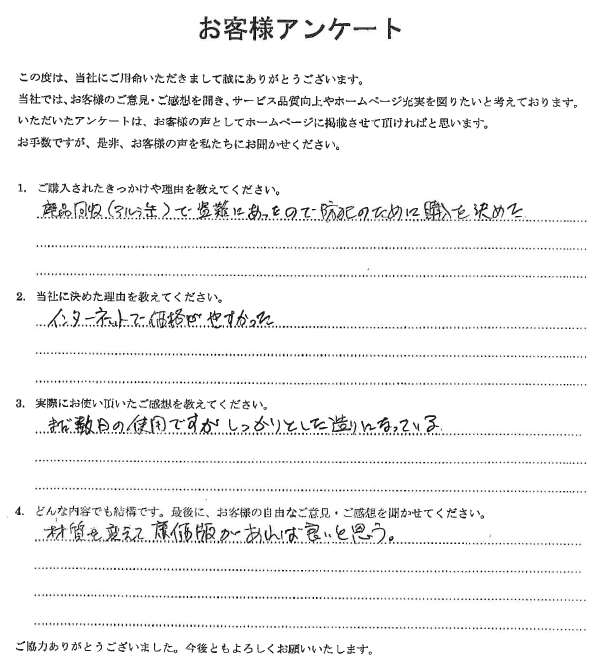 お客様アンケート
この度は、当社にご用命いただきまして誠にありがとうございます。
当社では、お客様のご意見・ご感想を聞き、サービス品質向上やホームページ充実を図りたいと考えております。
いただいたアンケートは、お客様の声としてホームページに掲載させて頂ければと思います。
お手数ですが、是非、お客様の声を私たちにお聞かせください。
1. ご購入されたきっかけや理由を教えてください。
廃品回収(アルミ缶)で盗難にあったので防犯のために購入を決めた
2. 当社に決めた理由を教えてください。
インターネットで価格がやすかった
3. 実際にお使い頂いたご感想を教えてください。
まだ数日の使用ですがしっかりとした造りになっている
4. どんな内容でも結構です。最後に、お客様の自由なご意見・ご感想を聞かせてください。
材質を変えて廉価版があれば良いと思う。
ご協力ありがとうございました。今後ともよろしくお願いいたします。